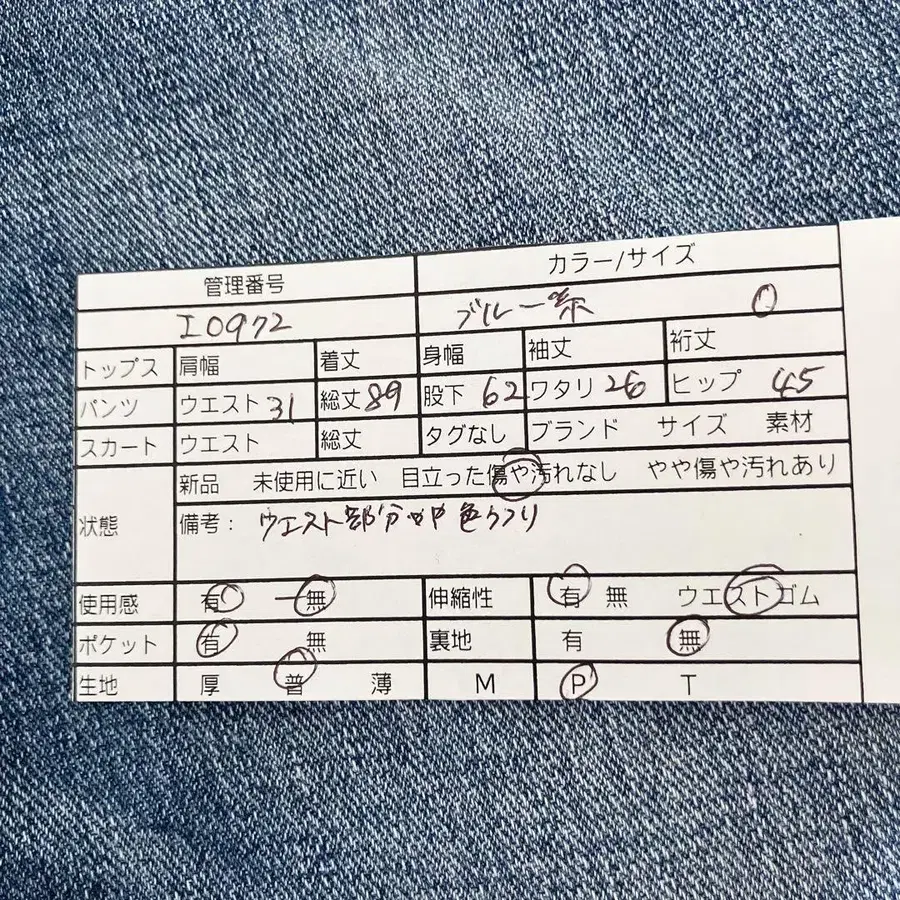 管理番号 カラー/サイズ
I0972 ブルー系 0
トップス 肩幅 着丈 身幅 袖丈 裄丈
パンツ ウエスト 31 総丈 89 股下 62 ワタリ 26 ヒップ 45
スカート ウエスト 総丈 タグなし ブランド サイズ 素材
状態 新品 未使用に近い 目立った傷や汚れなし やや傷や汚れあり
備考: ウエスト部分やや色うつり
使用感 有 ー 無 伸縮性 有 無 ウエストゴム
ポケット 有 無 裏地 有 無
生地 厚 普 薄 M P T